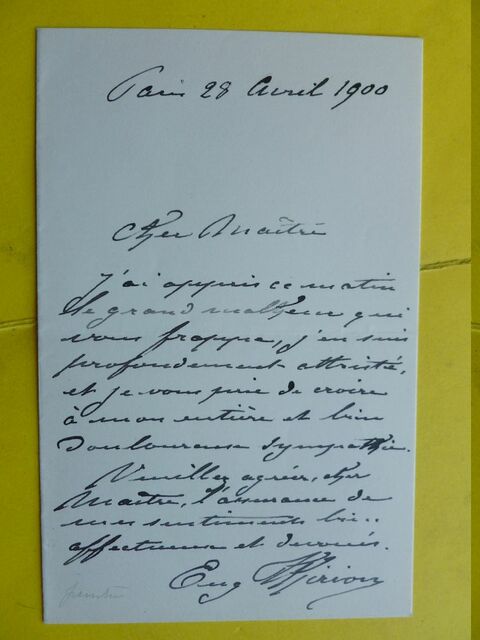 Paris 28 Avril 1900
Cher Maître
J'ai appris ce matin
le grand malheur qui
vous frappe, j'en suis
profondément attristé,
et je vous prie de croire
à mon entière et bien
douloureuse sympathie.
Veuillez agréer, cher
Maître, l'assurance de
mes sentiments bien
affectueux et dévoués.
Eug Thirion
peintre